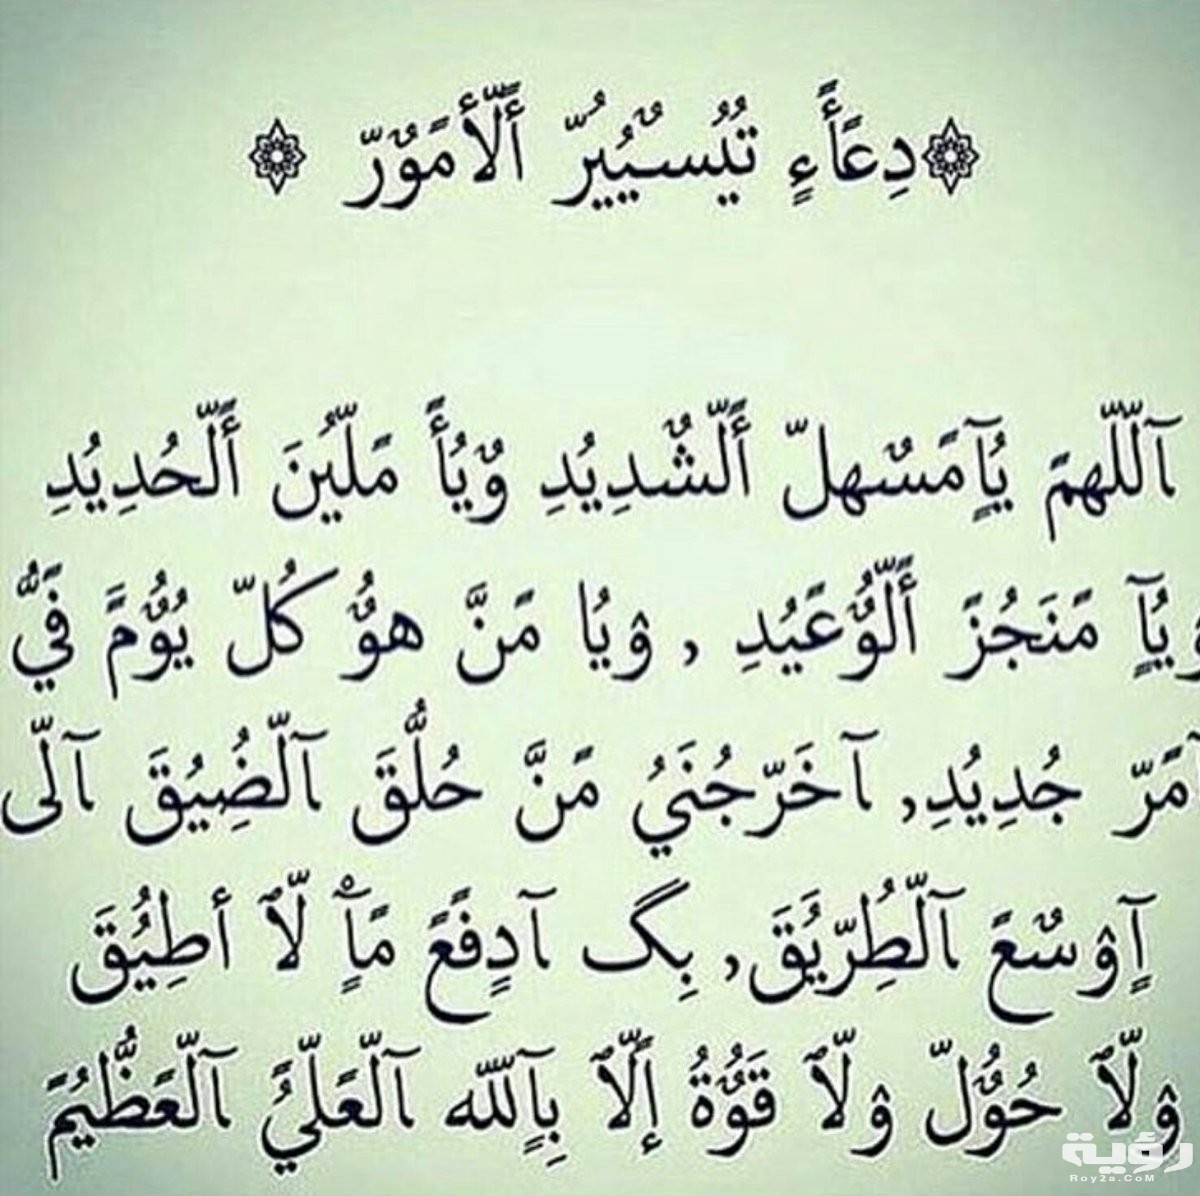 دعاء تيسير الأمور
آللهم يآمسهل ألشديد ويأ ملين ألحديد
ويآ منجز ألوعيد , ويا من هو كل يوم في
أمر جديد, آخرجني من حلق آلضيق آلى
آوسع آلطريق, بك آدفع مآ لا أطيق
ولا حول ولا قوة إلا بآلله آلعلي آلعظيم
رؤية
Roy2a.CoM